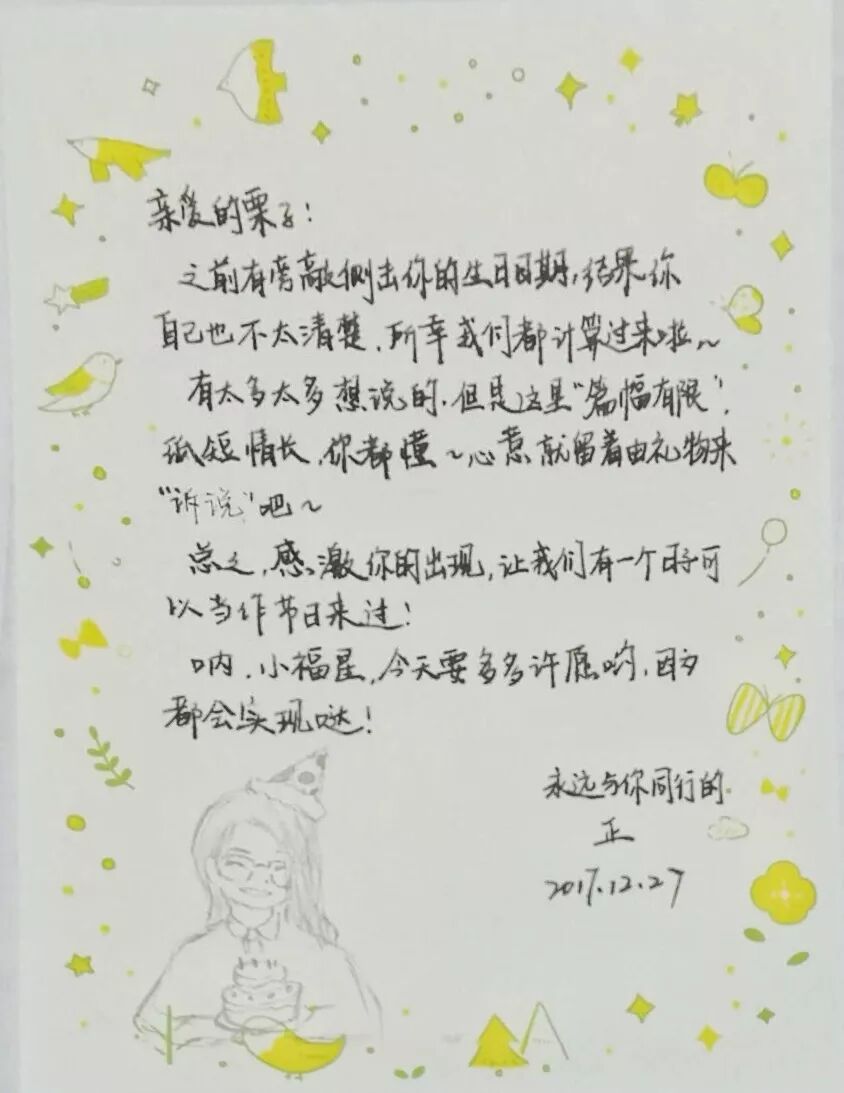 亲爱的栗子！
之前有旁敲侧击你的生日日期，结果你
自己也不太清楚，所幸我们都计算过来啦～
有太多太多想说的，但是这里“篇幅有限”，
纸短情长，你都懂～心意就留着由礼物来
“诉说”吧～
总之，感激你的出现，让我们有一个日子可
以当作节日来过！
呐，小福星，今天要多多许愿哟，因为
都会实现哒！
永远与你同行的
正
2017.12.27